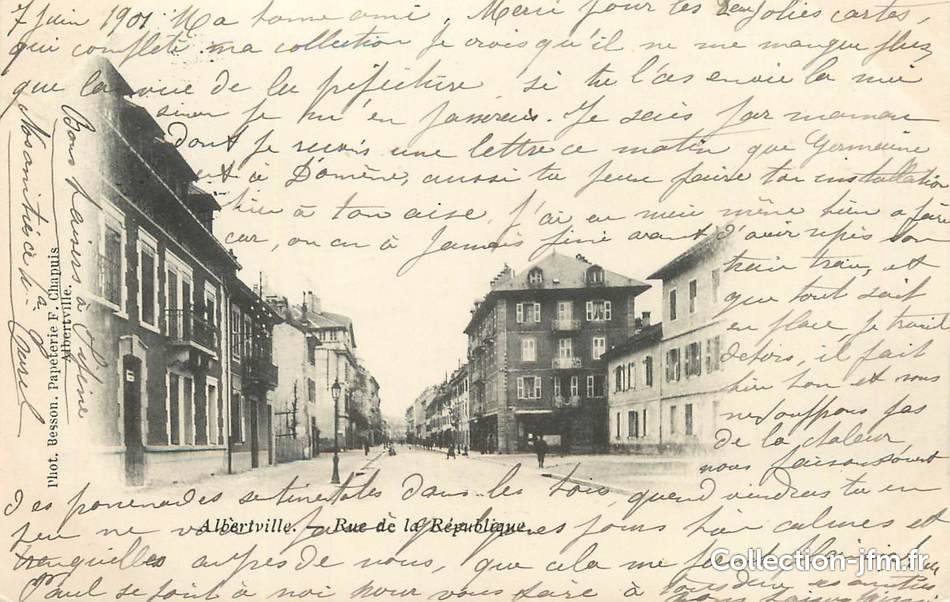 7 Juin 1901 Ma bonne amie, Merci pour tes deux jolies cartes,
qui complète ma collection Je crois qu'il ne me manque plus
que la vue de la préfecture, si tu l'as envoie la moi
sinon je m'en passerais. Je sais par maman
dont je reçois une lettre ce matin que Germaine
est à Domène, aussi tu peux faire ton installation
bien à ton aise, j'ai eu moi même bien à faire
car, on en a jamais fini avant d'avoir repris son
train train, et
que tout soit
en place je travaille
dehors, il fait
bien bon et nous
ne souffrons pas
de la chaleur
nous faisons souvent
des promenades sentinentales dans les bois, quand viendras tu en
peu ne vous faire quelques jours bien calmes et
tranquilles auprès de nous, que cela me
Paul se joint à moi pour vous faire à tous deux
Bons baisers à
Nos amitiés à
Phot. Besson. Papeterie F. Chapuis
Albertville.
Albertville. — Rue de la République.
Collection-jfm.fr